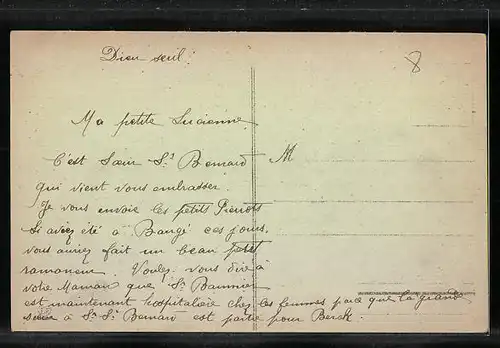 Dieu seul!
8
Ma petite Lucienne
C'est Sœur St Bernard
M
qui vient vous embrasser.
Je vous envoie les petits Pierrots
si aviez été à Baugé ces jours,
vous auriez fait un beau petit
ramoneur. Voulez vous dire à
votre Maman que St
est maintenant hospitalière chez les femmes parce que la grande
sœur à St Bernard est partie pour Berck.